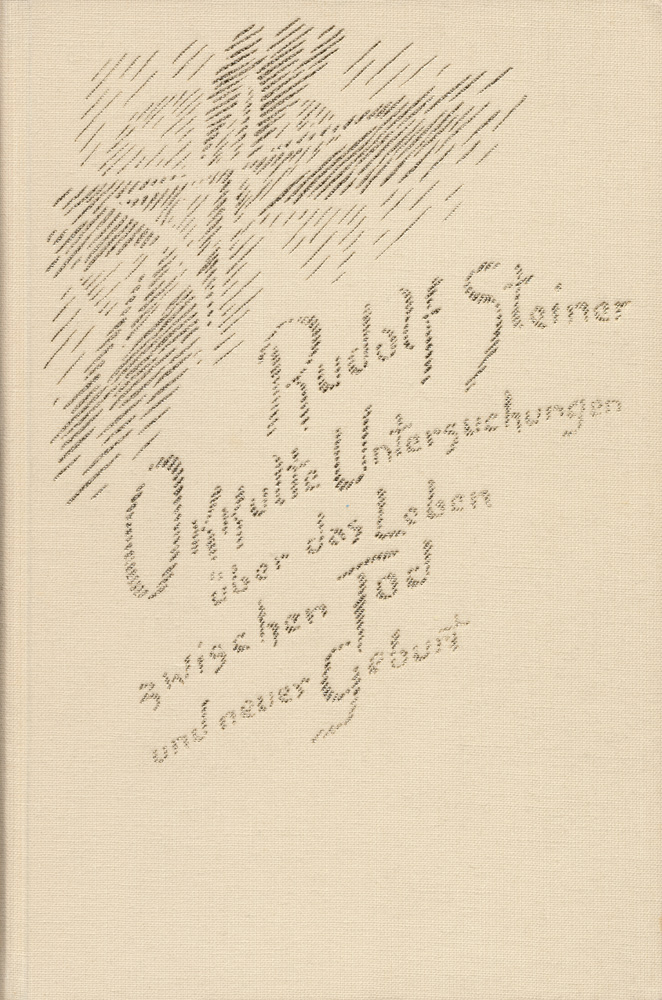 Rudolf Steiner
Okkulte Untersuchungen
über das Leben
zwischen Tod
und neuer Geburt